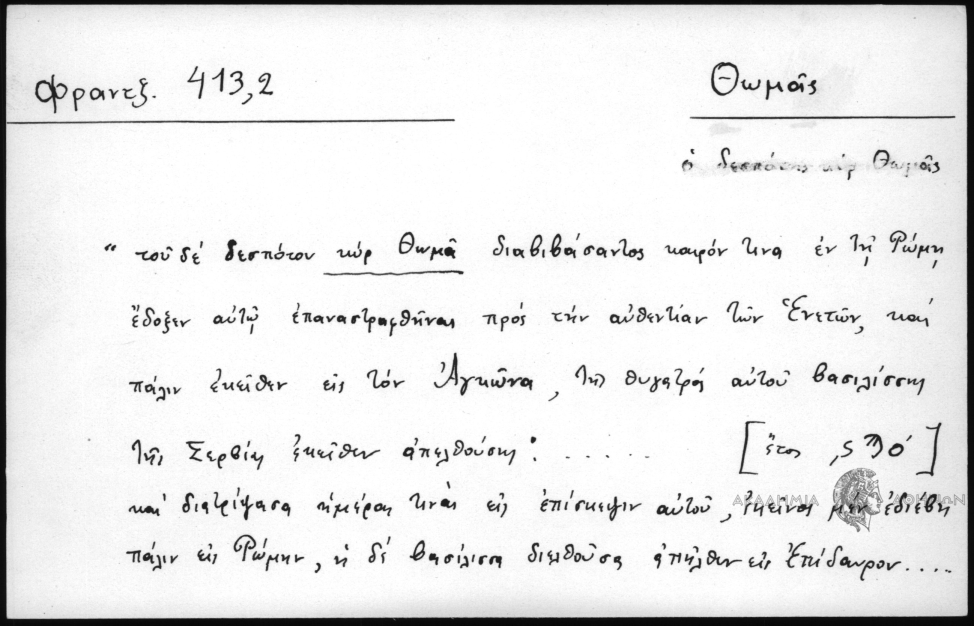 Φραντζ. 413,2
Θωμᾶς
ὁ δεσπότης κὺρ Θωμᾶς
“ τοῦ δέ δεσπότου κύρ Θωμᾶ διαβιβάσαντος καιρόν τινα ἐν τῇ Ρώμῃ
ἔδοξεν αὐτῷ ἐπαναστραφθῆναι πρός τήν αὐθεντίαν τῶν Ἑνετῶν, καί
πάλιν ἐκεῖθεν εἰς τόν Ἀγκῶνα, τῆς θυγατρός αὐτοῦ βασιλίσσης
τῆς Σερβίας ἐκεῖθεν ἀπελθούσης: . . . . . . [ἔτος ,ϛϠό]
καί διατρίψασα ἡμέρας τινάς εἰς ἐπίσκεψιν αὐτοῦ, ἐκεῖνος μέν ἐδιέβη
πάλιν εἰς Ρώμην, ἡ δέ βασίλισσα διελθοῦσα ἀπῆλθεν εἰς Ἐπίδαυρον....
ΑΚΑΔΗΜΙΑ ΑΘΗΝΩΝ